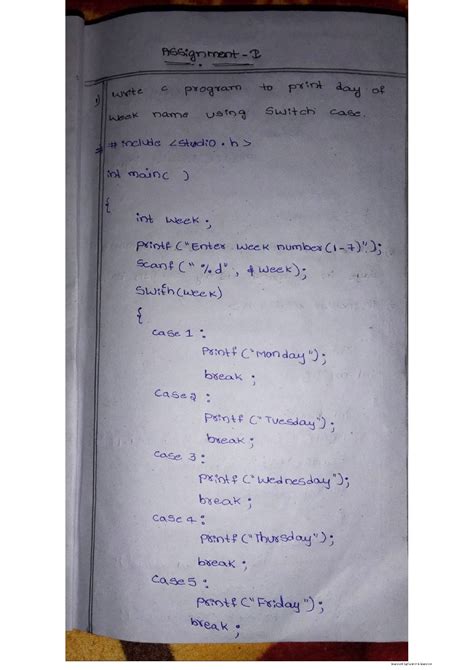 Assignment-I
1) Write c program to print day of
Week name using Switch case.
# include <studio.h>
int main( )
{
int week;
printf ("Enter week number(1-7)");
scanf (" %d", &week);
Swith(week)
{
case 1:
Printf ("Monday");
break ;
Case2 :
Printf ("Tuesday");
break ;
case 3 :
Printf ("Wednesday");
break ;
case 4 :
Printf ("Thursday");
break ;
Case 5 :
Printf ("Friday");
break ;